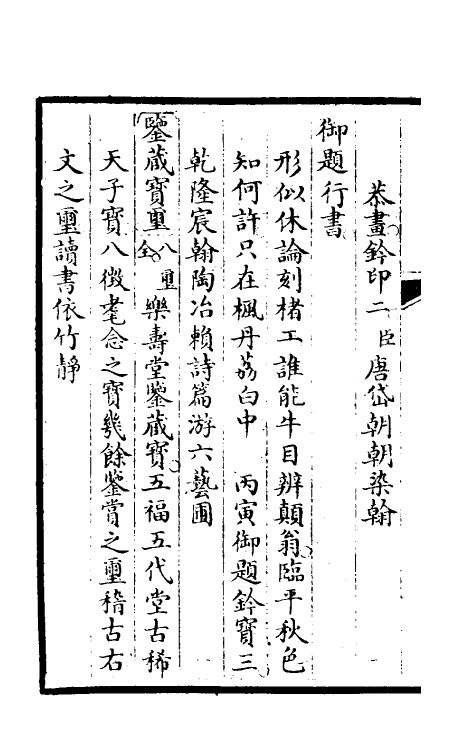 恭畫鈐印二臣唐岱朝朝染翰
御題行書
形似休論刻楮工誰能牛目辨顛翁臨平秋色
知何許只在楓丹荔白中 丙寅御題鈐寶三
乾隆宸翰陶冶賴詩篇游六藝圃
鑒藏寶璽八璽全樂壽堂鑒藏寶五福五代堂古稀
天子寶八徵耄念之寶幾餘鑒賞之璽稽古右
文之璽讀書依竹靜